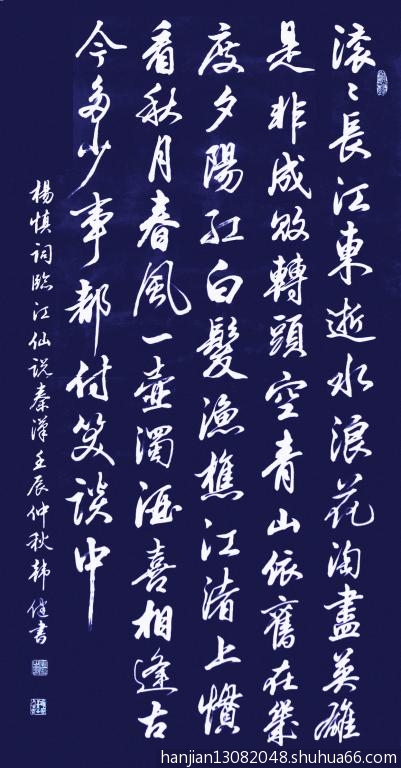 滚〻長江東逝水浪花淘盡英雄
是非成敗轉頭空青山依舊在幾
度夕陽紅白髮漁樵江渚上慣
看秋月春風一壺濁酒喜相逢古
今多少事都付笑談中
楊慎詞臨江仙說秦漢壬辰仲秋韓健書
hanjian13082048.shuhua66.com